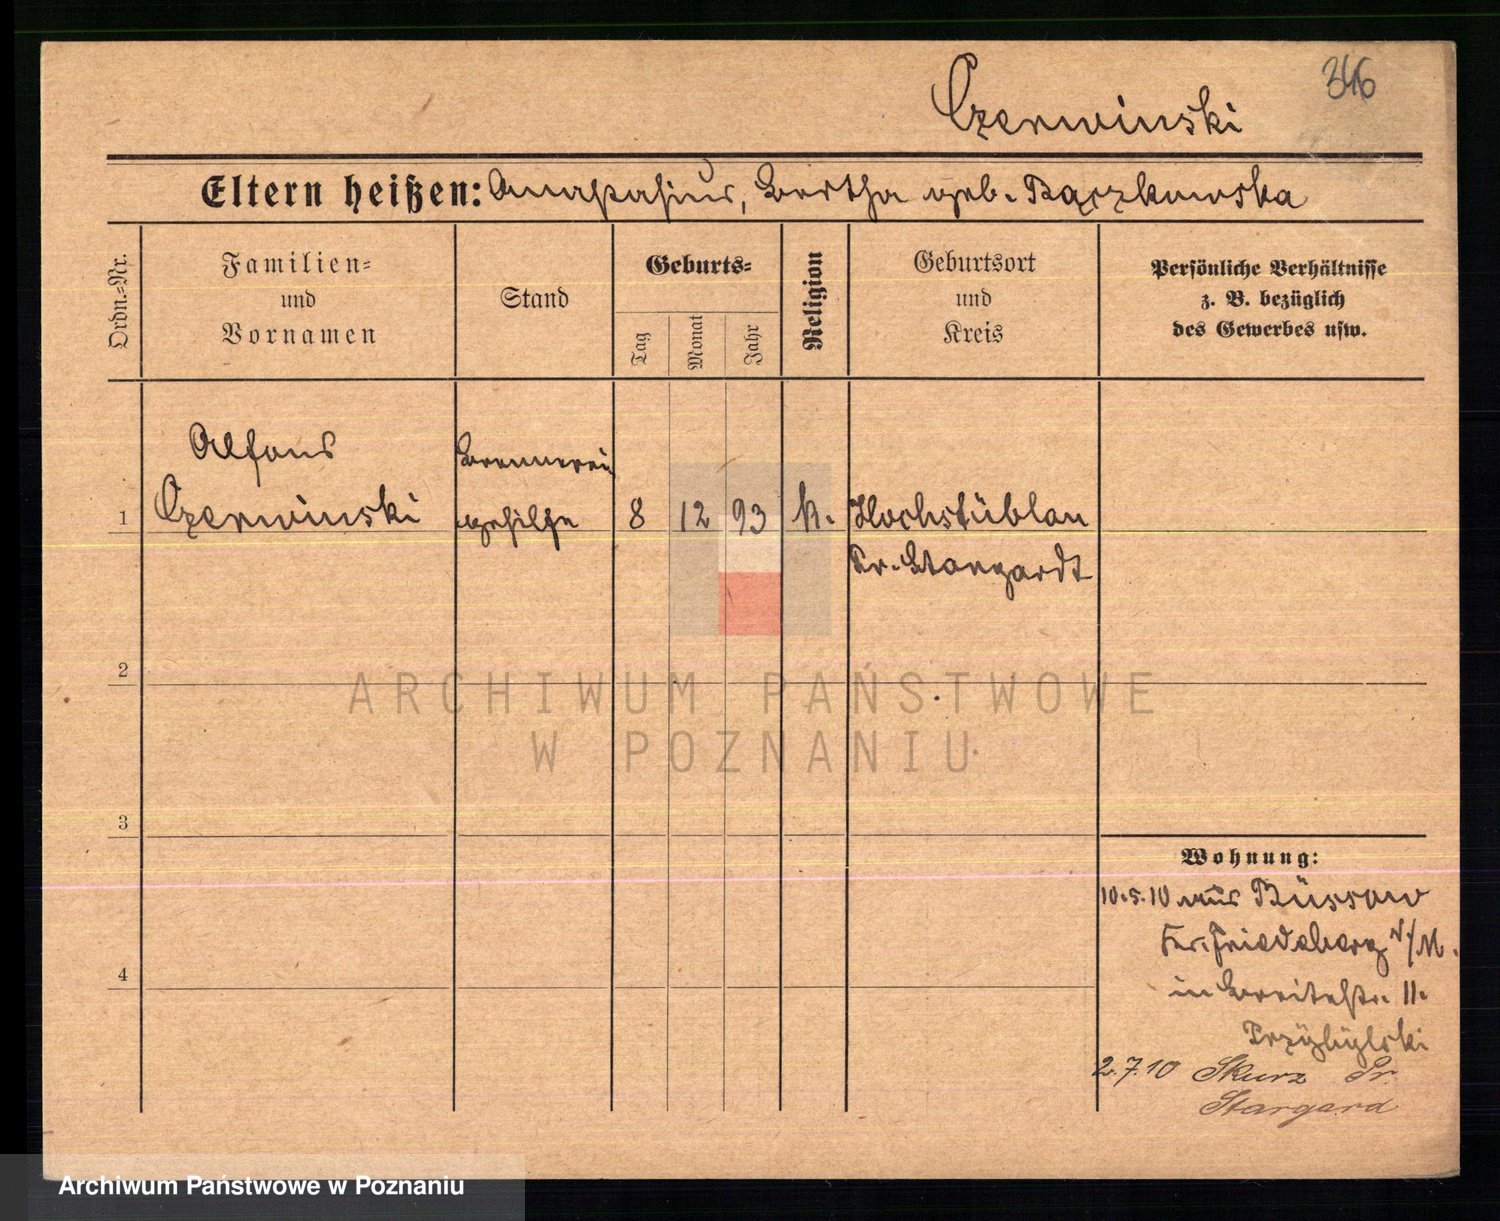 346
Czerwinski
Eltern heißen: Anastasius, Bertha geb. Bączkowska
Ordn.-Nr.
Familien-
und
Vornamen
Stand
Geburts-
Tag
Monat
Jahr
Religion
Geburtsort
und
Kreis
Persönliche Verhältnisse
z. B. bezüglich
des Gewerbes usw.
Alfons
Brennerei
1 Czerwinski gehilfe 8 12 93 k. Hochstüblau
Kr. Stargardt
2
ARCHIWUM PAŃSTWOWE
W POZNANIU
3
Wohnung:
10.5.10 aus Büssow
Kr. Friedeberg N/M.
4
in Breitestr. 11.
Przybylski
2.7.10 Skurz Pr.
Stargard
Archiwum Państwowe w Poznaniu